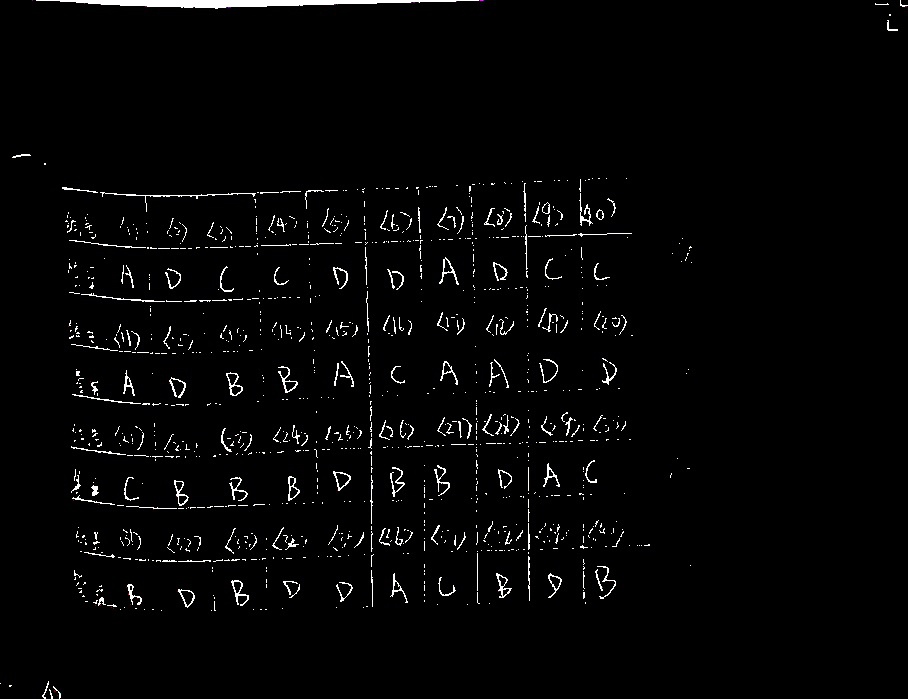 一.
题号 (1) (2) (3) (4) (5) (6) (7) (8) (9) (10)
答案 A D C C D D A D C C
题号 (11) (12) (13) (14) (15) (16) (17) (18) (19) (20)
答案 A D B B A C A A D D
题号 (21) (22) (23) (24) (25) (26) (27) (28) (29) (30)
答案 C B B B D B B D A C
题号 (31) (32) (33) (34) (35) (36) (37) (38) (39) (40)
答案 B D B D D A C B D B
(1)